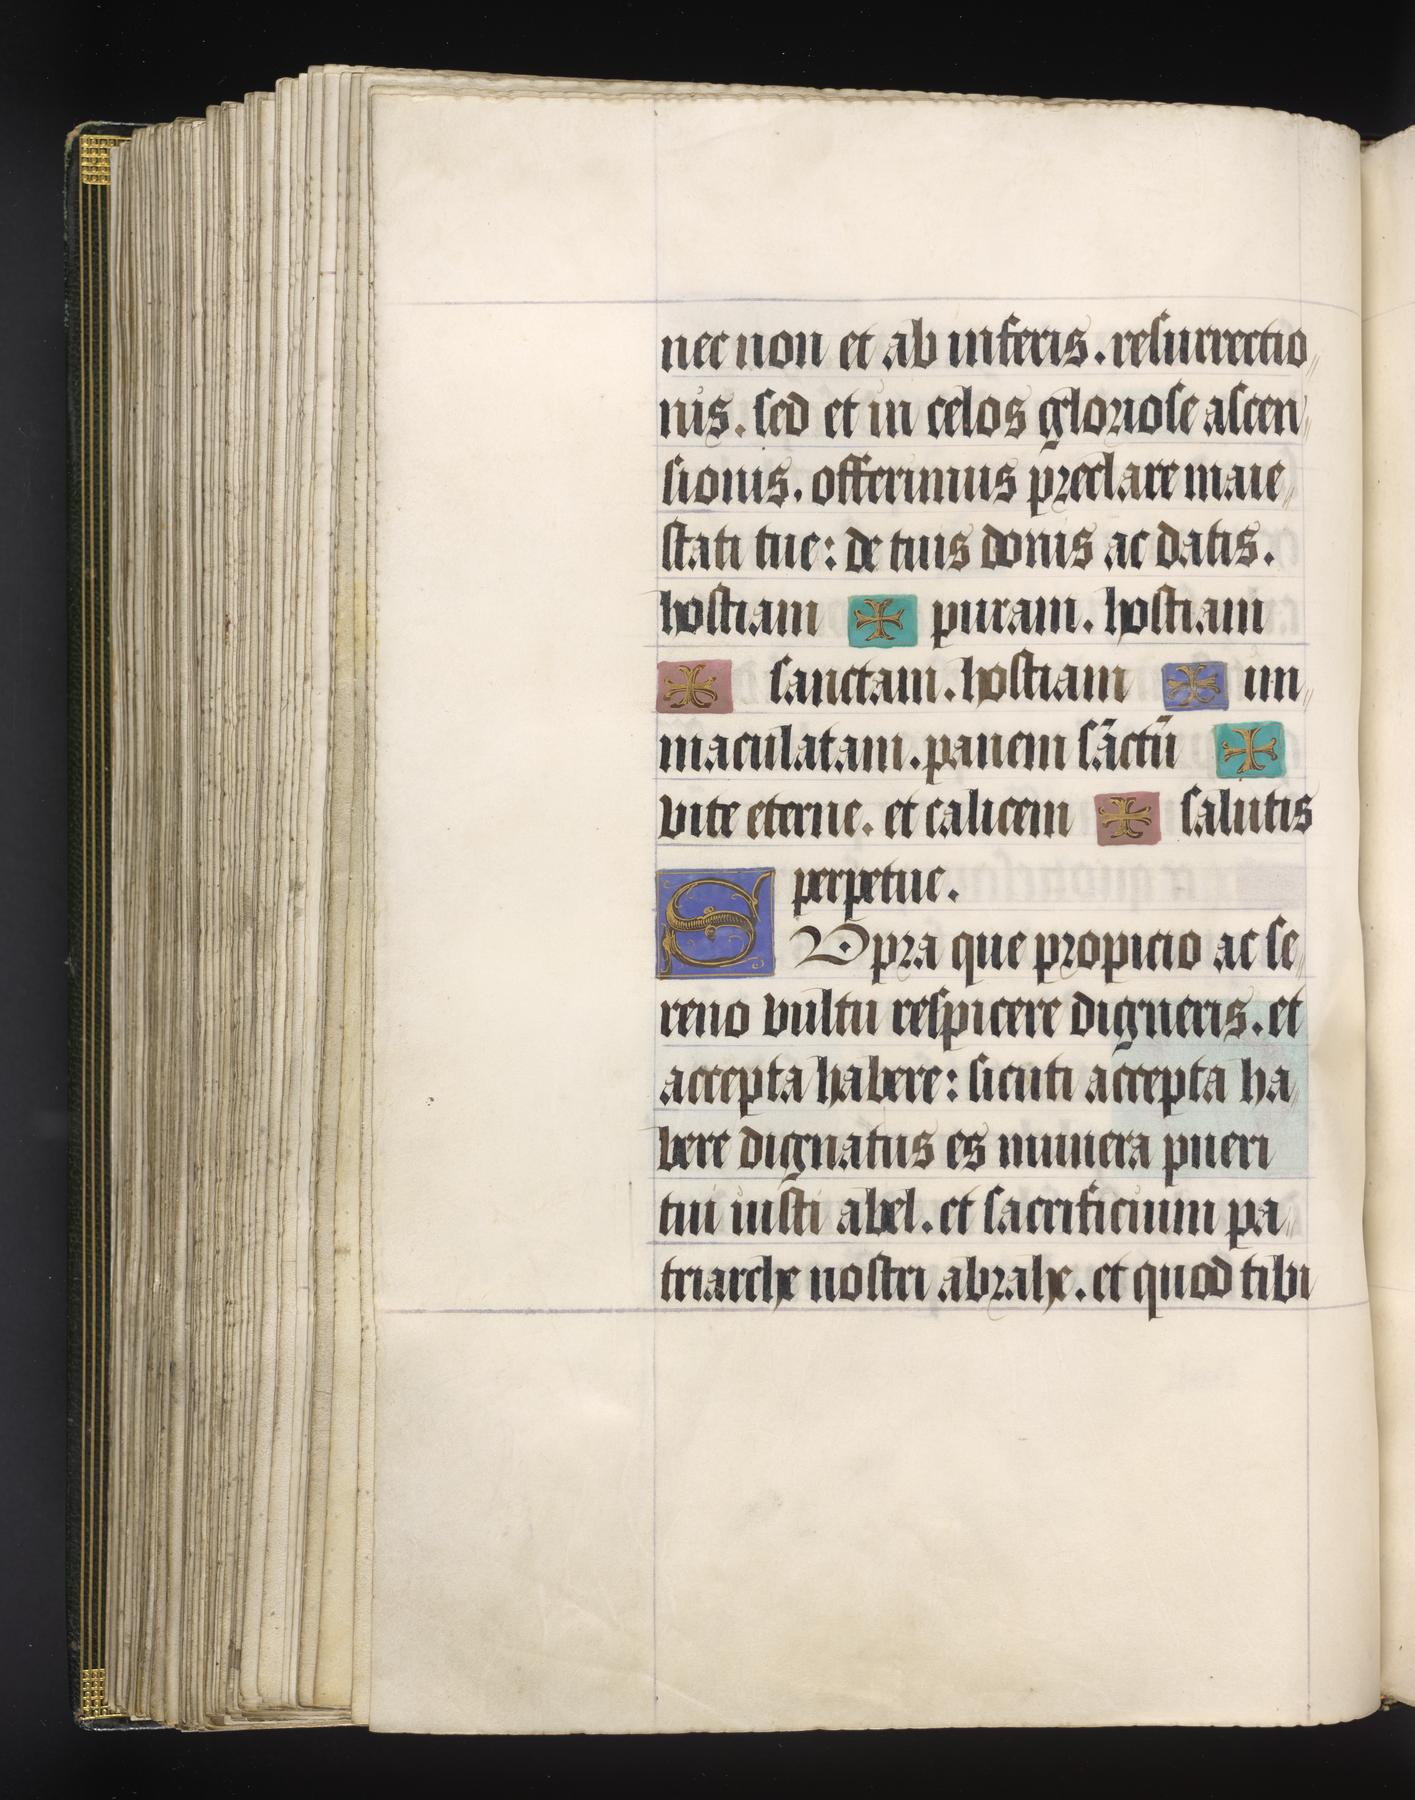 nec non et ab inferis. resurrectio
nis. sed et in celos gloriose ascen
sionis. offerimus preclare maie
stati tue: de tuis donis ac datis.
hostiam ✠ puram. hostiam
✠ sanctam. hostiam ✠ im
maculatam. panem sāctū ✠
vite eterne. et calicem ✠ salutis
perpetue.
SVpra que propicio ac se
reno vultu respicere digneris. et
accepta habere: sicuti accepta ha
bere dignatus es munera pueri
tui iusti abel. et sacrificium pa
triarche nostri abrahe. et quod tibi